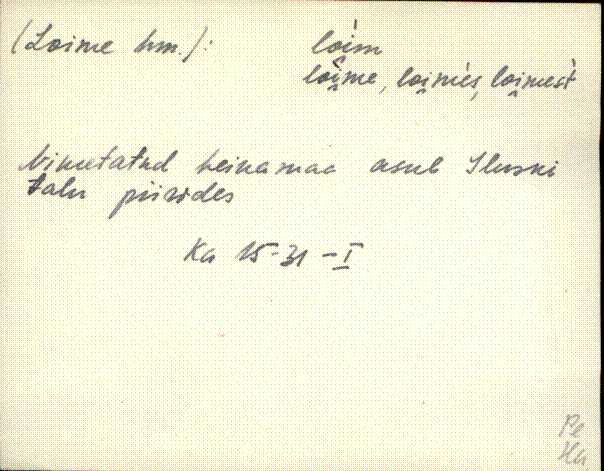 (Loime hm.): loim
loime, loimes, loimest
Nimetatud heinamaa asub Iluski
talu piirides
Ka 15-31-I
Pe
Ha